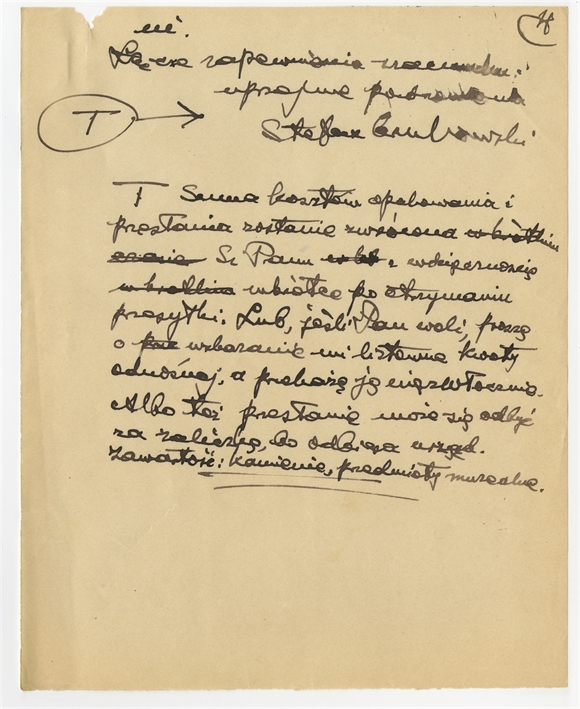 4
mi.
Łączę zapewnienia szacunku i
uprzejme pozdrowienia
T
Stefan
T Suma kosztów opakowania i
przesłania zostanie zwrócona w krótkim
czasie Sz Panu z wdzięcznością
w krótkim wkrótce po otrzymaniu
przesyłki. Lub, jeśli Pan woli, proszę
o wskazanie mi listownie kwoty
odnośnej, a przekażę ją niezwłocznie.
Albo też przesłanie może się odbyć
za zaliczką,
Zawartość: kamienie, przedmioty muzealne.